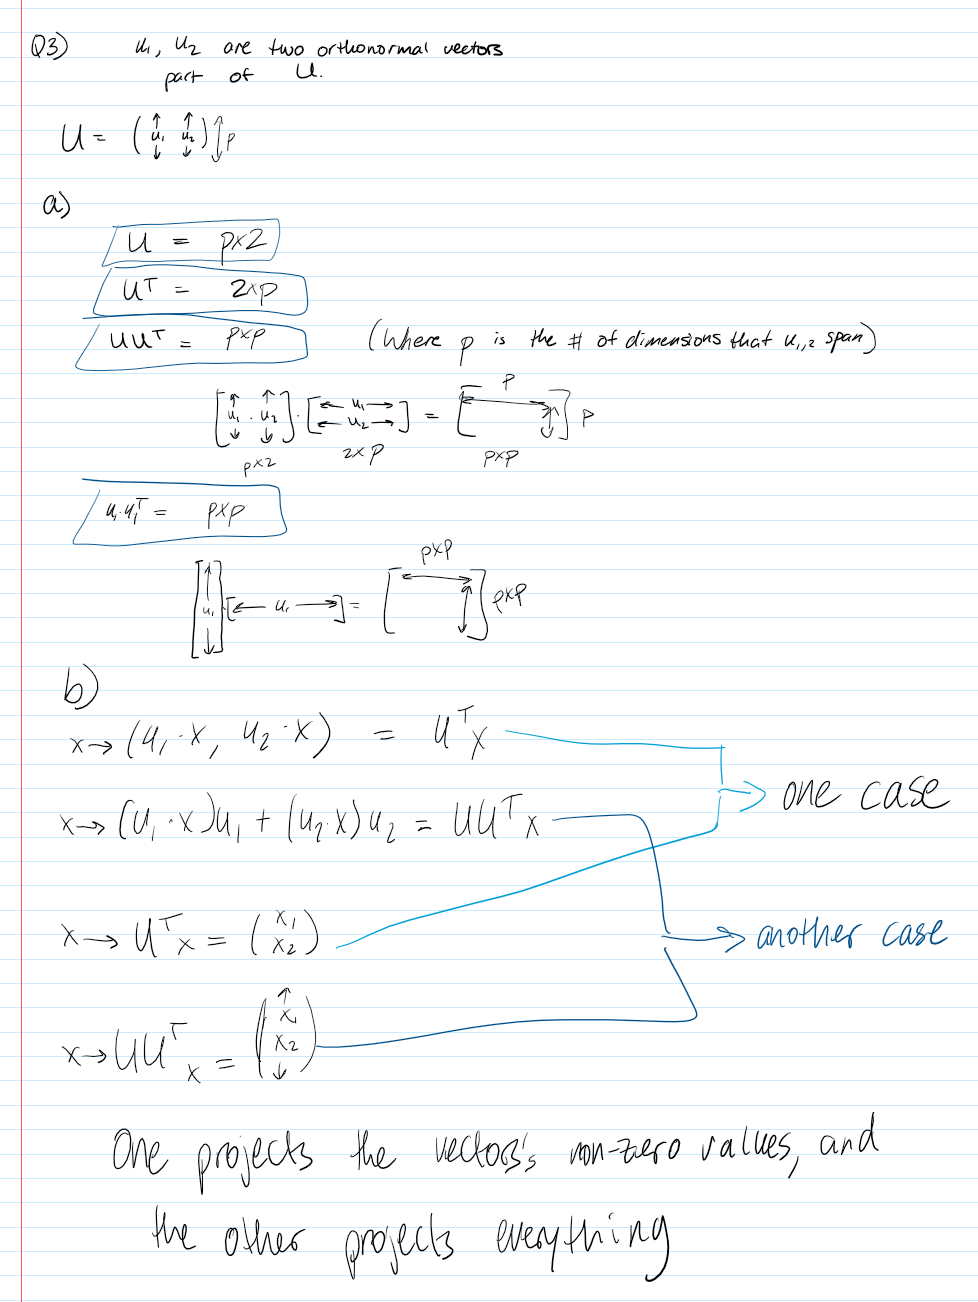 Q3) u₁, u₂ are two orthonormal vectors
part of U.
U = (u₁ u₂) p
a)
U = p×2
Uᵀ = 2×p
UUᵀ = p×p (Where p is the # of dimensions that u₁,₂ span)
p
[u₁ · u₂] · [← u₁ → ← u₂ →] = [ ] p
p×2 2×p p×p
u₁·u₁ᵀ = p×p
p×p
[u₁][← u₁ →] = [ ] p×p
b)
x→ (u₁·x, u₂·x) = Uᵀx
→ one case
x→ (u₁·x)u₁ + (u₂·x)u₂ = UUᵀx
x→ Uᵀx = (x₁ x₂)
→ another case
x→ UUᵀx = (↑ x₁ x₂ ↓)
One projects the vectors's non-zero values, and
the other projects everything